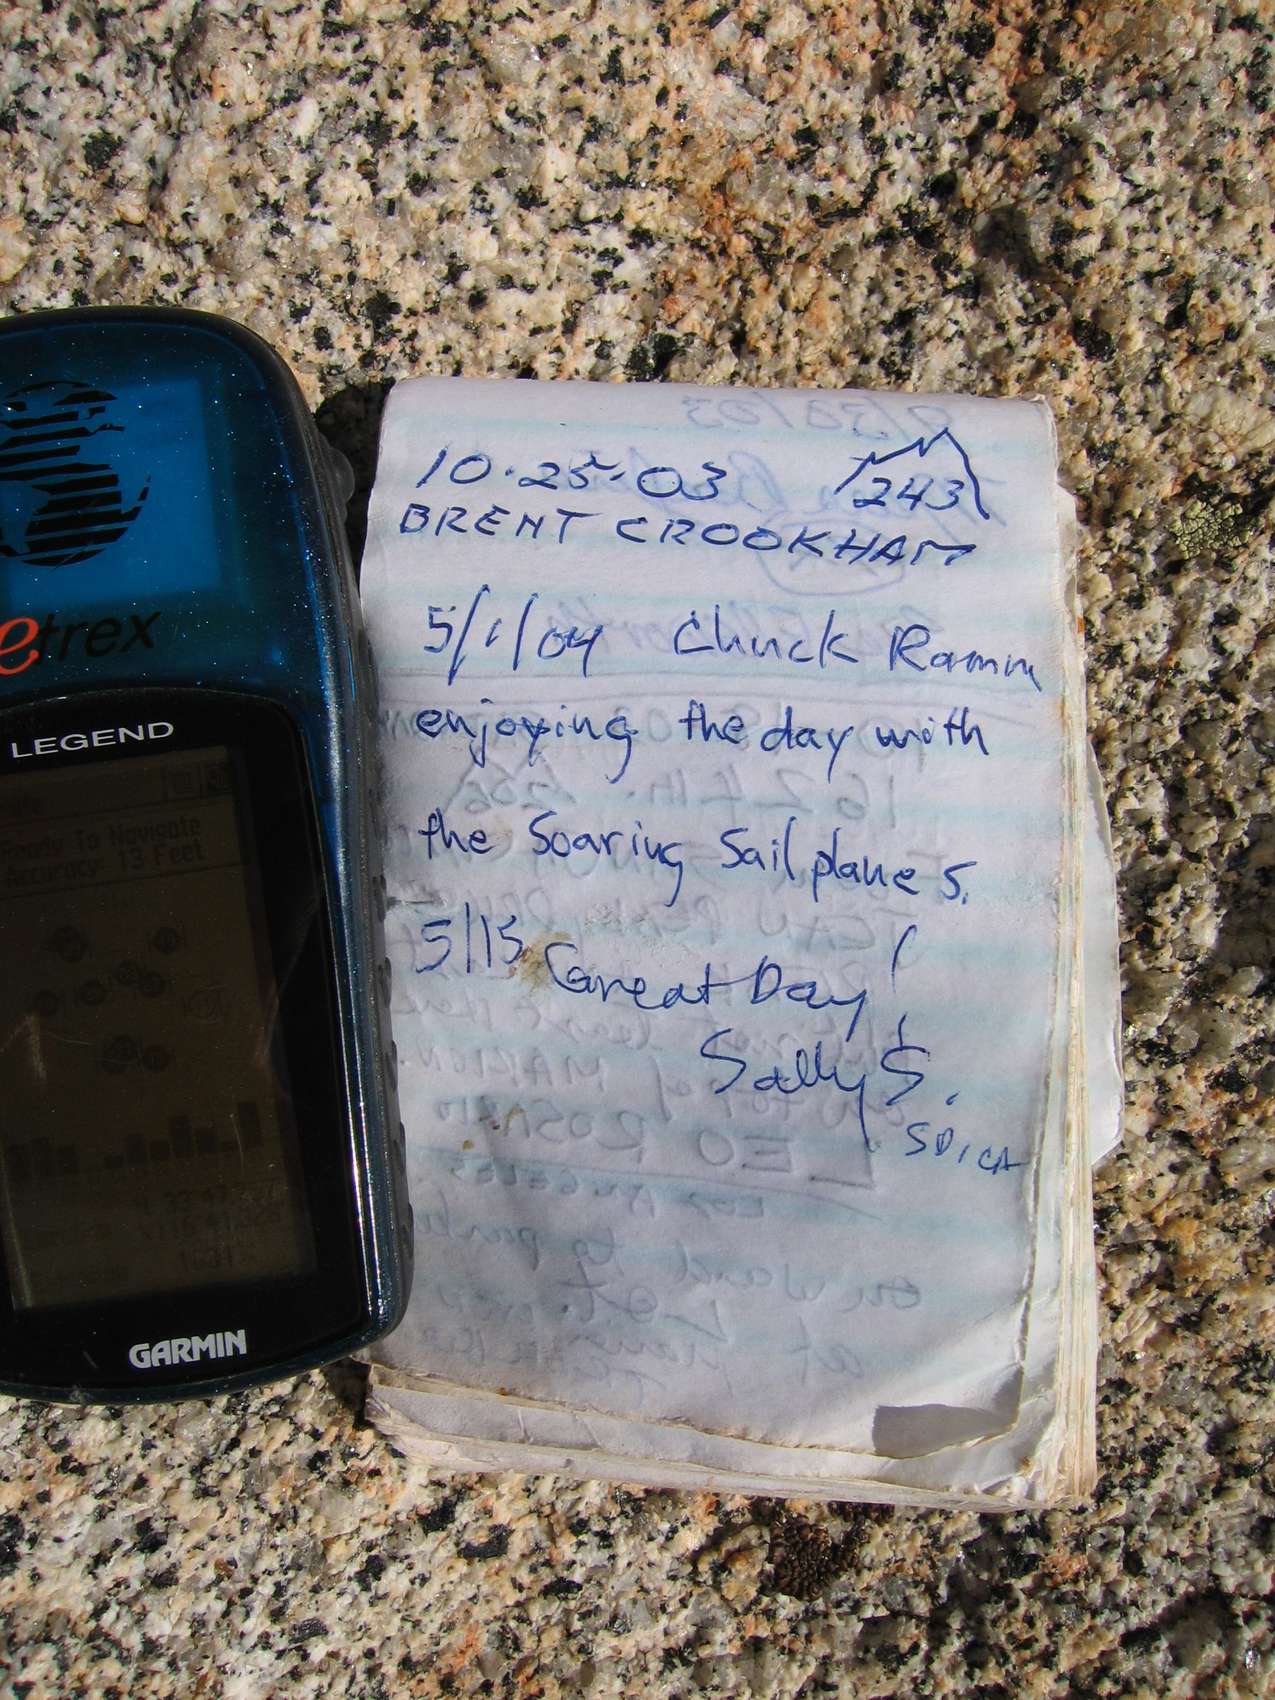 etrex
LEGEND
Ready To Navigate
Accuracy: 13 Feet
GARMIN
10·25·03 243
BRENT CROOKHAM
5/1/04 Chuck Ramm
enjoying the day with
the Soaring Sailplanes.
5/15 Great Day!
Sally S.
SD, CA